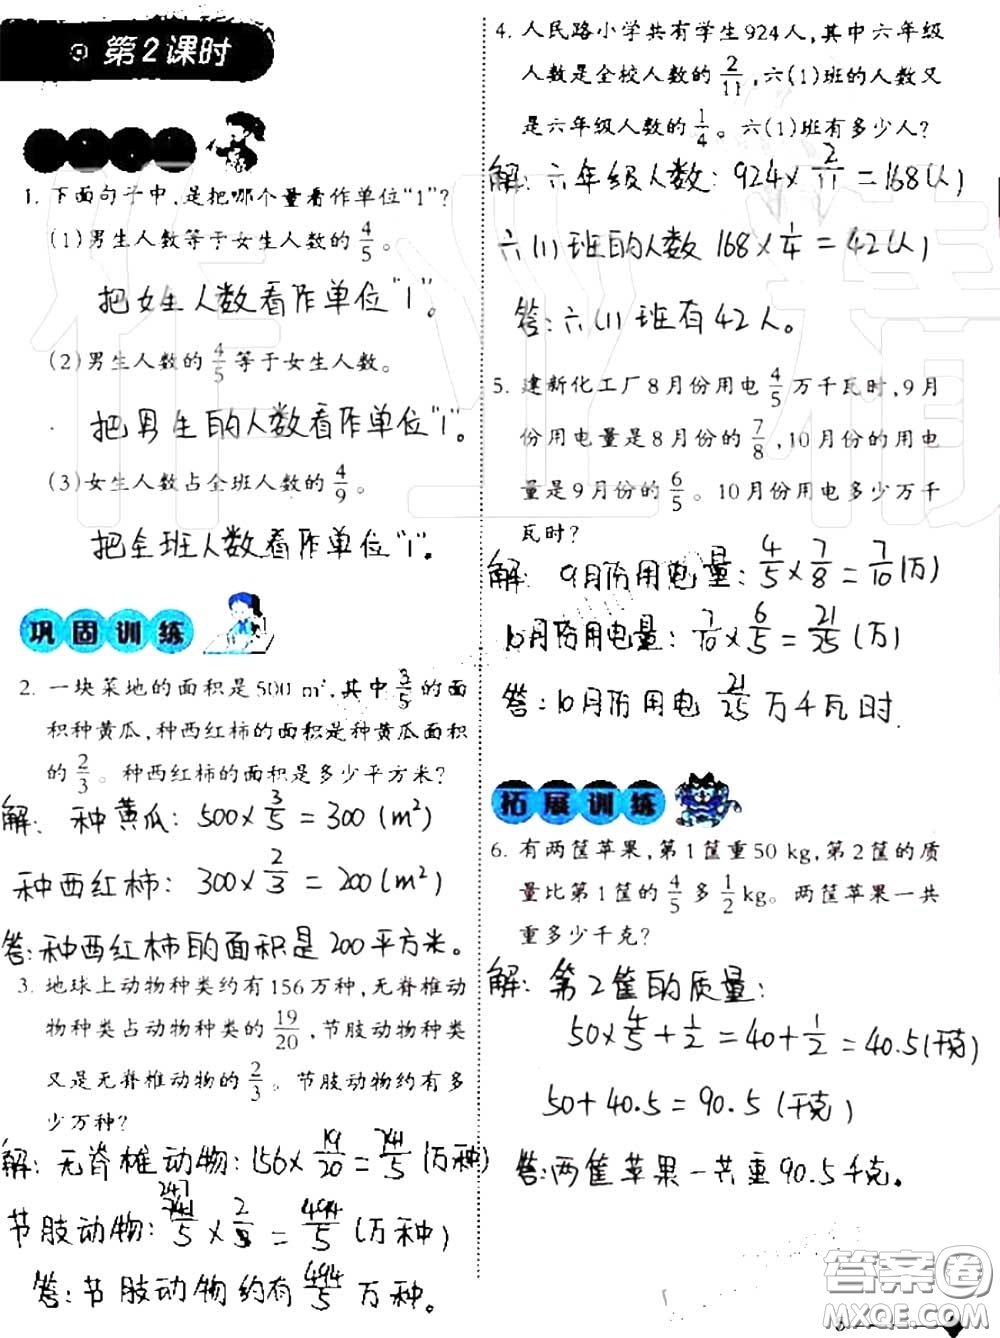 第2课时
1. 下面句子中,是把哪个量看作单位"1"?
(1)男生人数等于女生人数的4/5。
把女生人数看作单位"1"。
(2)男生人数的4/5等于女生人数。
把男生的人数看作单位"1"。
(3)女生人数占全班人数的4/9。
把全班人数看作单位"1"。
巩固训练
2. 一块菜地的面积是500 m²,其中3/5的面
积种黄瓜,种西红柿的面积是种黄瓜面积
的2/3。种西红柿的面积是多少平方米?
解: 种黄瓜: 500×3/5=300(m²)
种西红柿: 300×2/3=200(m²)
答:种西红柿的面积是200平方米。
3. 地球上动物种类约有156万种,无脊椎动
物种类占动物种类的19/20,节肢动物种类
又是无脊椎动物的2/3。节肢动物约有多
少万种?
解: 无脊椎动物: 156×19/20=741/5(万种)
247
节肢动物: 741/5×2/3=494/5(万种)
答:节肢动物约有494/5万种。
4. 人民路小学共有学生924人,其中六年级
人数是全校人数的2/11,六(1)班的人数又
是六年级人数的1/4。六(1)班有多少人?
解: 六年级人数: 924×2/11=168(人)
六(1)班的人数 168×1/4=42(人)
答:六(1)班有42人。
5. 建新化工厂8月份用电4/5万千瓦时,9月
份用电量是8月份的7/8,10月份的用电
量是9月份的6/5。10月份用电多少万千
瓦时?
解: 9月份用电量: 4/5×7/8=7/10(万)
10月份用电量: 7/10×6/5=21/25(万)
答:10月份用电21/25万千瓦时.
拓展训练
6. 有两筐苹果,第1筐重50 kg,第2筐的质
量比第1筐的4/5多1/2 kg。两筐苹果一共
重多少千克?
解: 第2筐的质量:
50×4/5+1/2=40+1/2=40.5(千克)
50+40.5=90.5(千克)
答:两筐苹果一共重90.5千克。
作业精
答案圈
MXQE.COM